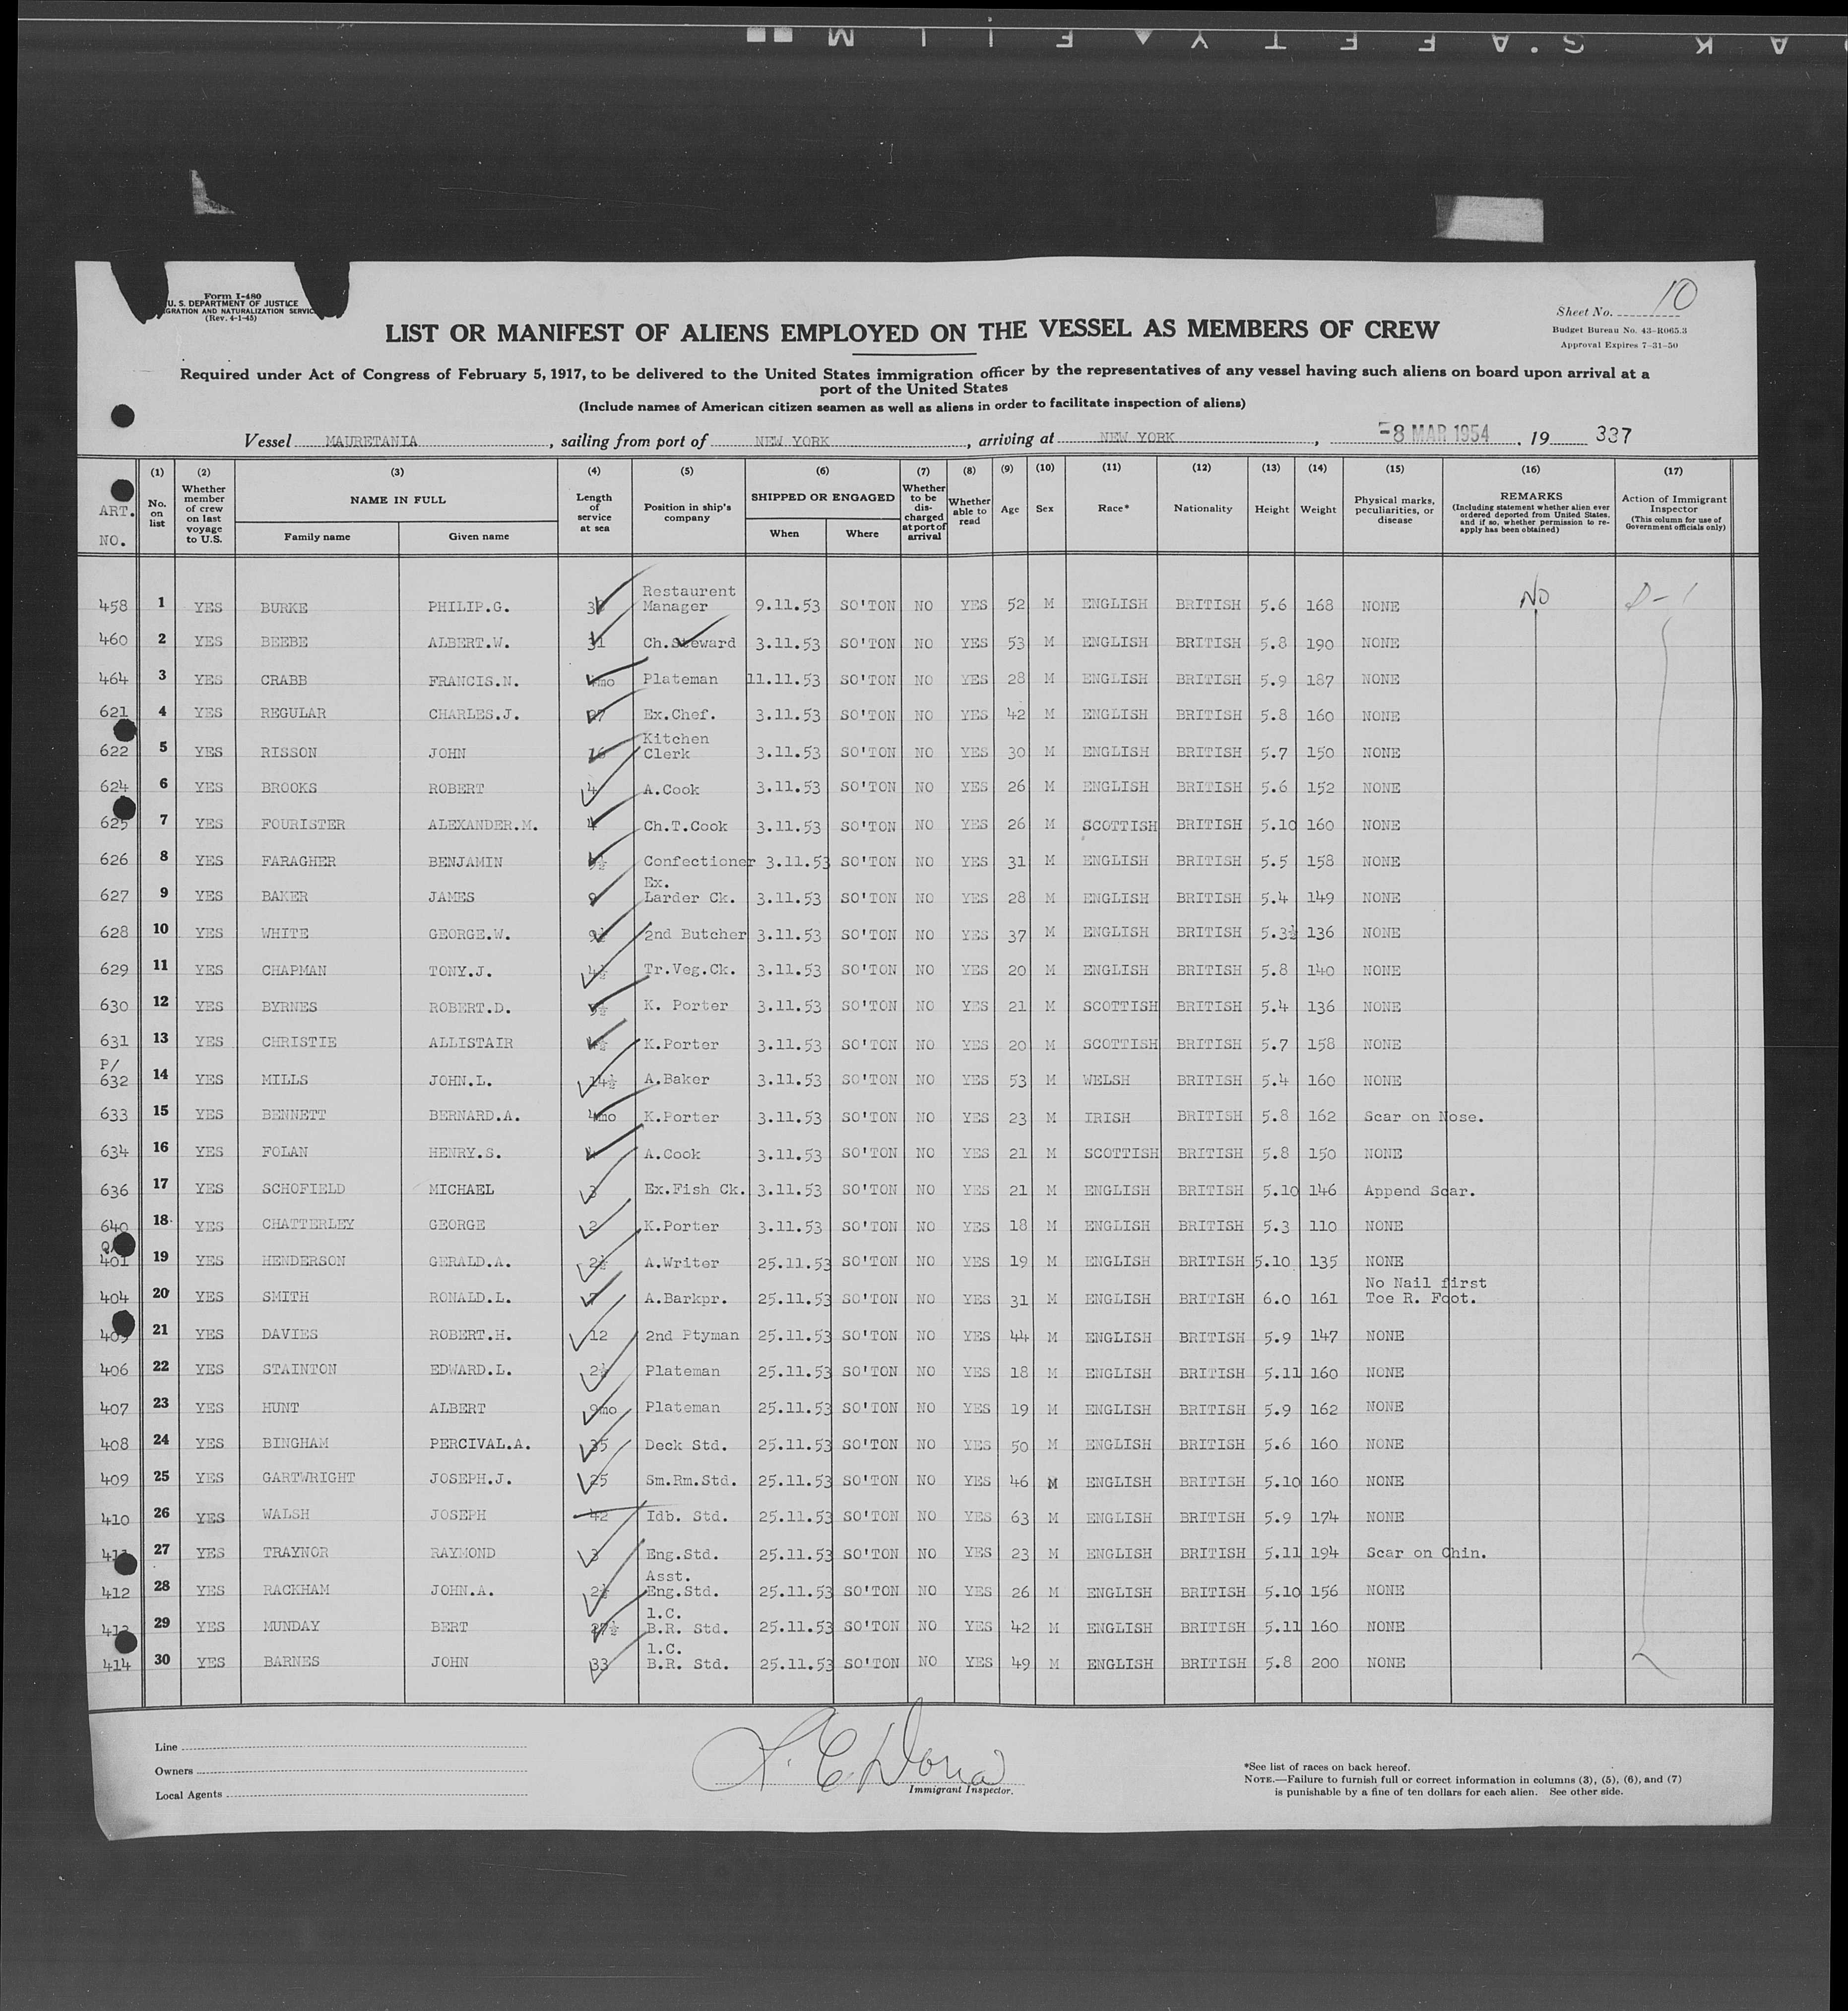 SAFETY FILM
Form I-480
U. S. DEPARTMENT OF JUSTICE
GRATION AND NATURALIZATION SERVIC
(Rev. 4-1-45)
Sheet No. 10
Budget Bureau No. 43-R065.3
Approval Expires 7-31-50
LIST OR MANIFEST OF ALIENS EMPLOYED ON THE VESSEL AS MEMBERS OF CREW
Required under Act of Congress of February 5, 1917, to be delivered to the United States immigration officer by the representatives of any vessel having such aliens on board upon arrival at a
port of the United States
(Include names of American citizen seamen as well as aliens in order to facilitate inspection of aliens)
Vessel MAURETANIA, sailing from port of NEW YORK, arriving at NEW YORK, -8 MAR 1954, 19 337
ART. NO. (1) No. on list (2) Whether member of crew on last voyage to U.S. (3) NAME IN FULL Family name Given name (4) Length of service at sea (5) Position in ship's company (6) SHIPPED OR ENGAGED When Where (7) Whether to be discharged at port of arrival (8) Whether able to read (9) Age (10) Sex (11) Race* (12) Nationality (13) Height (14) Weight (15) Physical marks, peculiarities, or disease (16) REMARKS (Including statement whether alien ever ordered deported from United States, and if so, whether permission to re-apply has been obtained) (17) Action of Immigrant Inspector (This column for use of Government officials only)
458 1 YES BURKE PHILIP.G. Restaurent Manager 9.11.53 SO'TON NO YES 52 M ENGLISH BRITISH 5.6 168 NONE No D-1
460 2 YES BEEBE ALBERT.W. 31 Ch.Steward 3.11.53 SO'TON NO YES 53 M ENGLISH BRITISH 5.8 190 NONE
464 3 YES CRABB FRANCIS.N. 4mo Plateman 11.11.53 SO'TON NO YES 28 M ENGLISH BRITISH 5.9 187 NONE
621 4 YES REGULAR CHARLES.J. 27 Ex.Chef. 3.11.53 SO'TON NO YES 42 M ENGLISH BRITISH 5.8 160 NONE
622 5 YES RISSON JOHN 16 Kitchen Clerk 3.11.53 SO'TON NO YES 30 M ENGLISH BRITISH 5.7 150 NONE
624 6 YES BROOKS ROBERT 4 A.Cook 3.11.53 SO'TON NO YES 26 M ENGLISH BRITISH 5.6 152 NONE
625 7 YES FOURISTER ALEXANDER.M. 4 Ch.T.Cook 3.11.53 SO'TON NO YES 26 M SCOTTISH BRITISH 5.10 160 NONE
626 8 YES FARAGHER BENJAMIN Confectioner 3.11.53 SO'TON NO YES 31 M ENGLISH BRITISH 5.5 158 NONE
627 9 YES BAKER JAMES 9 Ex. Larder Ck. 3.11.53 SO'TON NO YES 28 M ENGLISH BRITISH 5.4 149 NONE
628 10 YES WHITE GEORGE.W. 9½ 2nd Butcher 3.11.53 SO'TON NO YES 37 M ENGLISH BRITISH 5.3½ 136 NONE
629 11 YES CHAPMAN TONY.J. 4½ Tr.Veg.Ck. 3.11.53 SO'TON NO YES 20 M ENGLISH BRITISH 5.8 140 NONE
630 12 YES BYRNES ROBERT.D. K. Porter 3.11.53 SO'TON NO YES 21 M SCOTTISH BRITISH 5.4 136 NONE
631 13 YES CHRISTIE ALLISTAIR 4½ K.Porter 3.11.53 SO'TON NO YES 20 M SCOTTISH BRITISH 5.7 158 NONE
P/ 632 14 YES MILLS JOHN.L. 14½ A.Baker 3.11.53 SO'TON NO YES 53 M WELSH BRITISH 5.4 160 NONE
633 15 YES BENNETT BERNARD.A. 4mo K.Porter 3.11.53 SO'TON NO YES 23 M IRISH BRITISH 5.8 162 Scar on Nose.
634 16 YES FOLAN HENRY.S. A.Cook 3.11.53 SO'TON NO YES 21 M SCOTTISH BRITISH 5.8 150 NONE
636 17 YES SCHOFIELD MICHAEL 3 Ex.Fish Ck. 3.11.53 SO'TON NO YES 21 M ENGLISH BRITISH 5.10 146 Append Scar.
640 18 YES CHATTERLEY GEORGE 2 K.Porter 3.11.53 SO'TON NO YES 18 M ENGLISH BRITISH 5.3 110 NONE
401 19 YES HENDERSON GERALD.A. 2½ A.Writer 25.11.53 SO'TON NO YES 19 M ENGLISH BRITISH 5.10 135 NONE
404 20 YES SMITH RONALD.L. 7 A.Barkpr. 25.11.53 SO'TON NO YES 31 M ENGLISH BRITISH 6.0 161 No Nail first Toe R. Foot.
405 21 YES DAVIES ROBERT.H. 12 2nd Ptyman 25.11.53 SO'TON NO YES 44 M ENGLISH BRITISH 5.9 147 NONE
406 22 YES STAINTON EDWARD.L. 2½ Plateman 25.11.53 SO'TON NO YES 18 M ENGLISH BRITISH 5.11 160 NONE
407 23 YES HUNT ALBERT 9mo Plateman 25.11.53 SO'TON NO YES 19 M ENGLISH BRITISH 5.9 162 NONE
408 24 YES BINGHAM PERCIVAL.A. 35 Deck Std. 25.11.53 SO'TON NO YES 50 M ENGLISH BRITISH 5.6 160 NONE
409 25 YES GARTWRIGHT JOSEPH.J. 25 Sm.Rm.Std. 25.11.53 SO'TON NO YES 46 M ENGLISH BRITISH 5.10 160 NONE
410 26 YES WALSH JOSEPH 42 Idb. Std. 25.11.53 SO'TON NO YES 63 M ENGLISH BRITISH 5.9 174 NONE
411 27 YES TRAYNOR RAYMOND 3 Eng.Std. 25.11.53 SO'TON NO YES 23 M ENGLISH BRITISH 5.11 194 Scar on Chin.
412 28 YES RACKHAM JOHN.A. 2½ Asst. Eng.Std. 25.11.53 SO'TON NO YES 26 M ENGLISH BRITISH 5.10 156 NONE
413 29 YES MUNDAY BERT 27½ 1.C. B.R. Std. 25.11.53 SO'TON NO YES 42 M ENGLISH BRITISH 5.11 160 NONE
414 30 YES BARNES JOHN 33 1.C. B.R. Std. 25.11.53 SO'TON NO YES 49 M ENGLISH BRITISH 5.8 200 NONE
Line
Owners
Local Agents
Immigrant Inspector.
*See list of races on back hereof.
NOTE.—Failure to furnish full or correct information in columns (3), (5), (6), and (7)
is punishable by a fine of ten dollars for each alien. See other side.